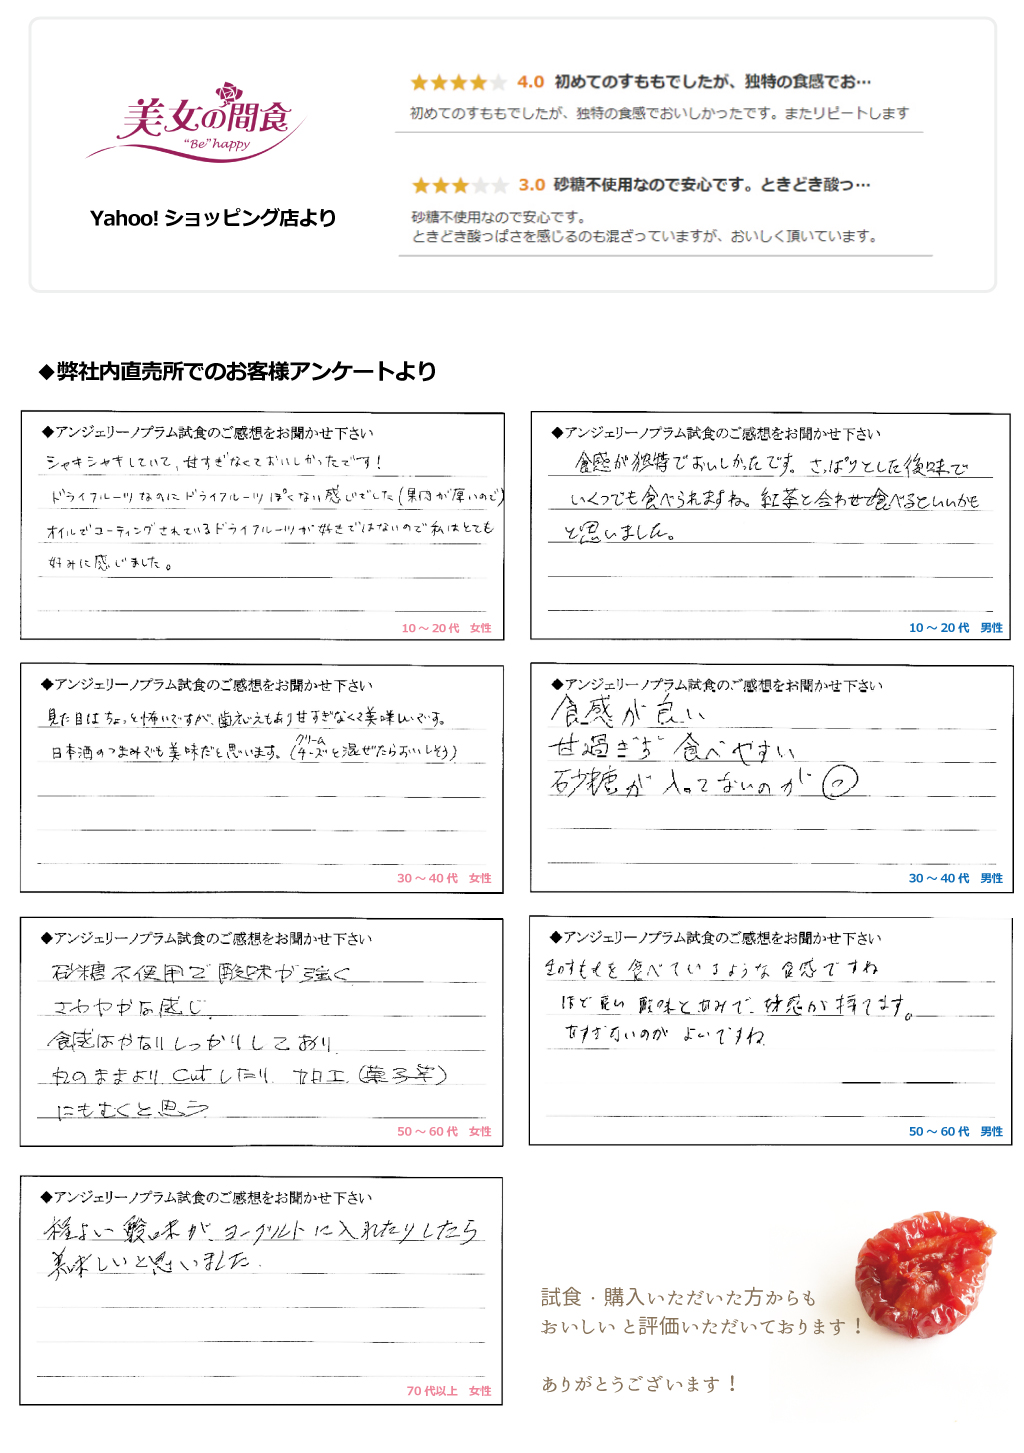 美女の間食
"Be" happy
Yahoo! ショッピング店より
4.0 初めてのすももでしたが、独特の食感でお…
初めてのすももでしたが、独特の食感でおいしかったです。またリピートします
3.0 砂糖不使用なので安心です。ときどき酸っ…
砂糖不使用なので安心です。
ときどき酸っぱさを感じるのも混ざっていますが、おいしく頂いています。
◆弊社内直売所でのお客様アンケートより
◆アンジェリーノプラム試食のご感想をお聞かせ下さい
シャキシャキしていて、甘すぎなくておいしかったです！
ドライフルーツなのにドライフルーツぽくない感じでした(果肉が厚いので)
オイルでコーティングされているドライフルーツが好きではないので私はとても
好みに感じました。
10～20代 女性
◆アンジェリーノプラム試食のご感想をお聞かせ下さい
食感が独特でおいしかったです。さっぱりとした後味で
いくつでも食べられますね。紅茶と合わせて食べるといいかも
と思いました。
10～20代 男性
◆アンジェリーノプラム試食のご感想をお聞かせ下さい
見た目はちょっと怖いですが、歯応えもあり甘すぎなくて美味しいです。
日本酒のつまみでも美味だと思います。(クリームチーズと混ぜたらおいしそう)
30～40代 女性
◆アンジェリーノプラム試食のご感想をお聞かせ下さい
食感が良い
甘過ぎず 食べやすい
砂糖が入ってないのが◎
30～40代 男性
◆アンジェリーノプラム試食のご感想をお聞かせ下さい
砂糖不使用で酸味が強く
さわやかな感じ.
食感はかなりしっかりしており、
丸のままより、Cutしたり、加工(菓子等)
にもむくと思う
50～60代 女性
◆アンジェリーノプラム試食のご感想をお聞かせ下さい
生のすももを食べているような食感ですね
ほど良い酸味と甘みで、好感が持てます。
甘すぎないのがよいですね
50～60代 男性
◆アンジェリーノプラム試食のご感想をお聞かせ下さい
程よい酸味が、ヨーグルトに入れたりしたら
美味しいと思いました.
70代以上 女性
試食・購入いただいた方からも
おいしいと評価いただいております！
ありがとうございます！